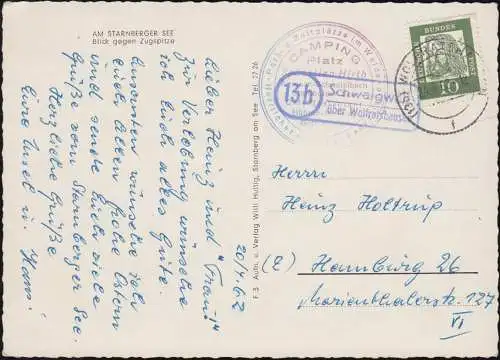 AM STARNBERGER SEE
Blick gegen Zugspitze
20/4.62
Lieber Heinz und "Frau"!
Zur Verlobung wünsche
ich Euch alles Gute.
Ansonsten wünsche ich
Euch allen frohe Ostern
und sende Euch viele
Grüße vom Starnberger See.
Herzliche Grüße
Eure Ursel u. Hans!
F 3 Aufn. u. Verlag Willi Huttig, Starnberg am See Tel. 27 26
CAMPING
Platz
13b
über Wolfratshausen
DEUTSCHE BUNDESPOST
10
Herrn
Heinz Holtrup
(2) Hamburg 26
Marienthalerstr. 127
VI